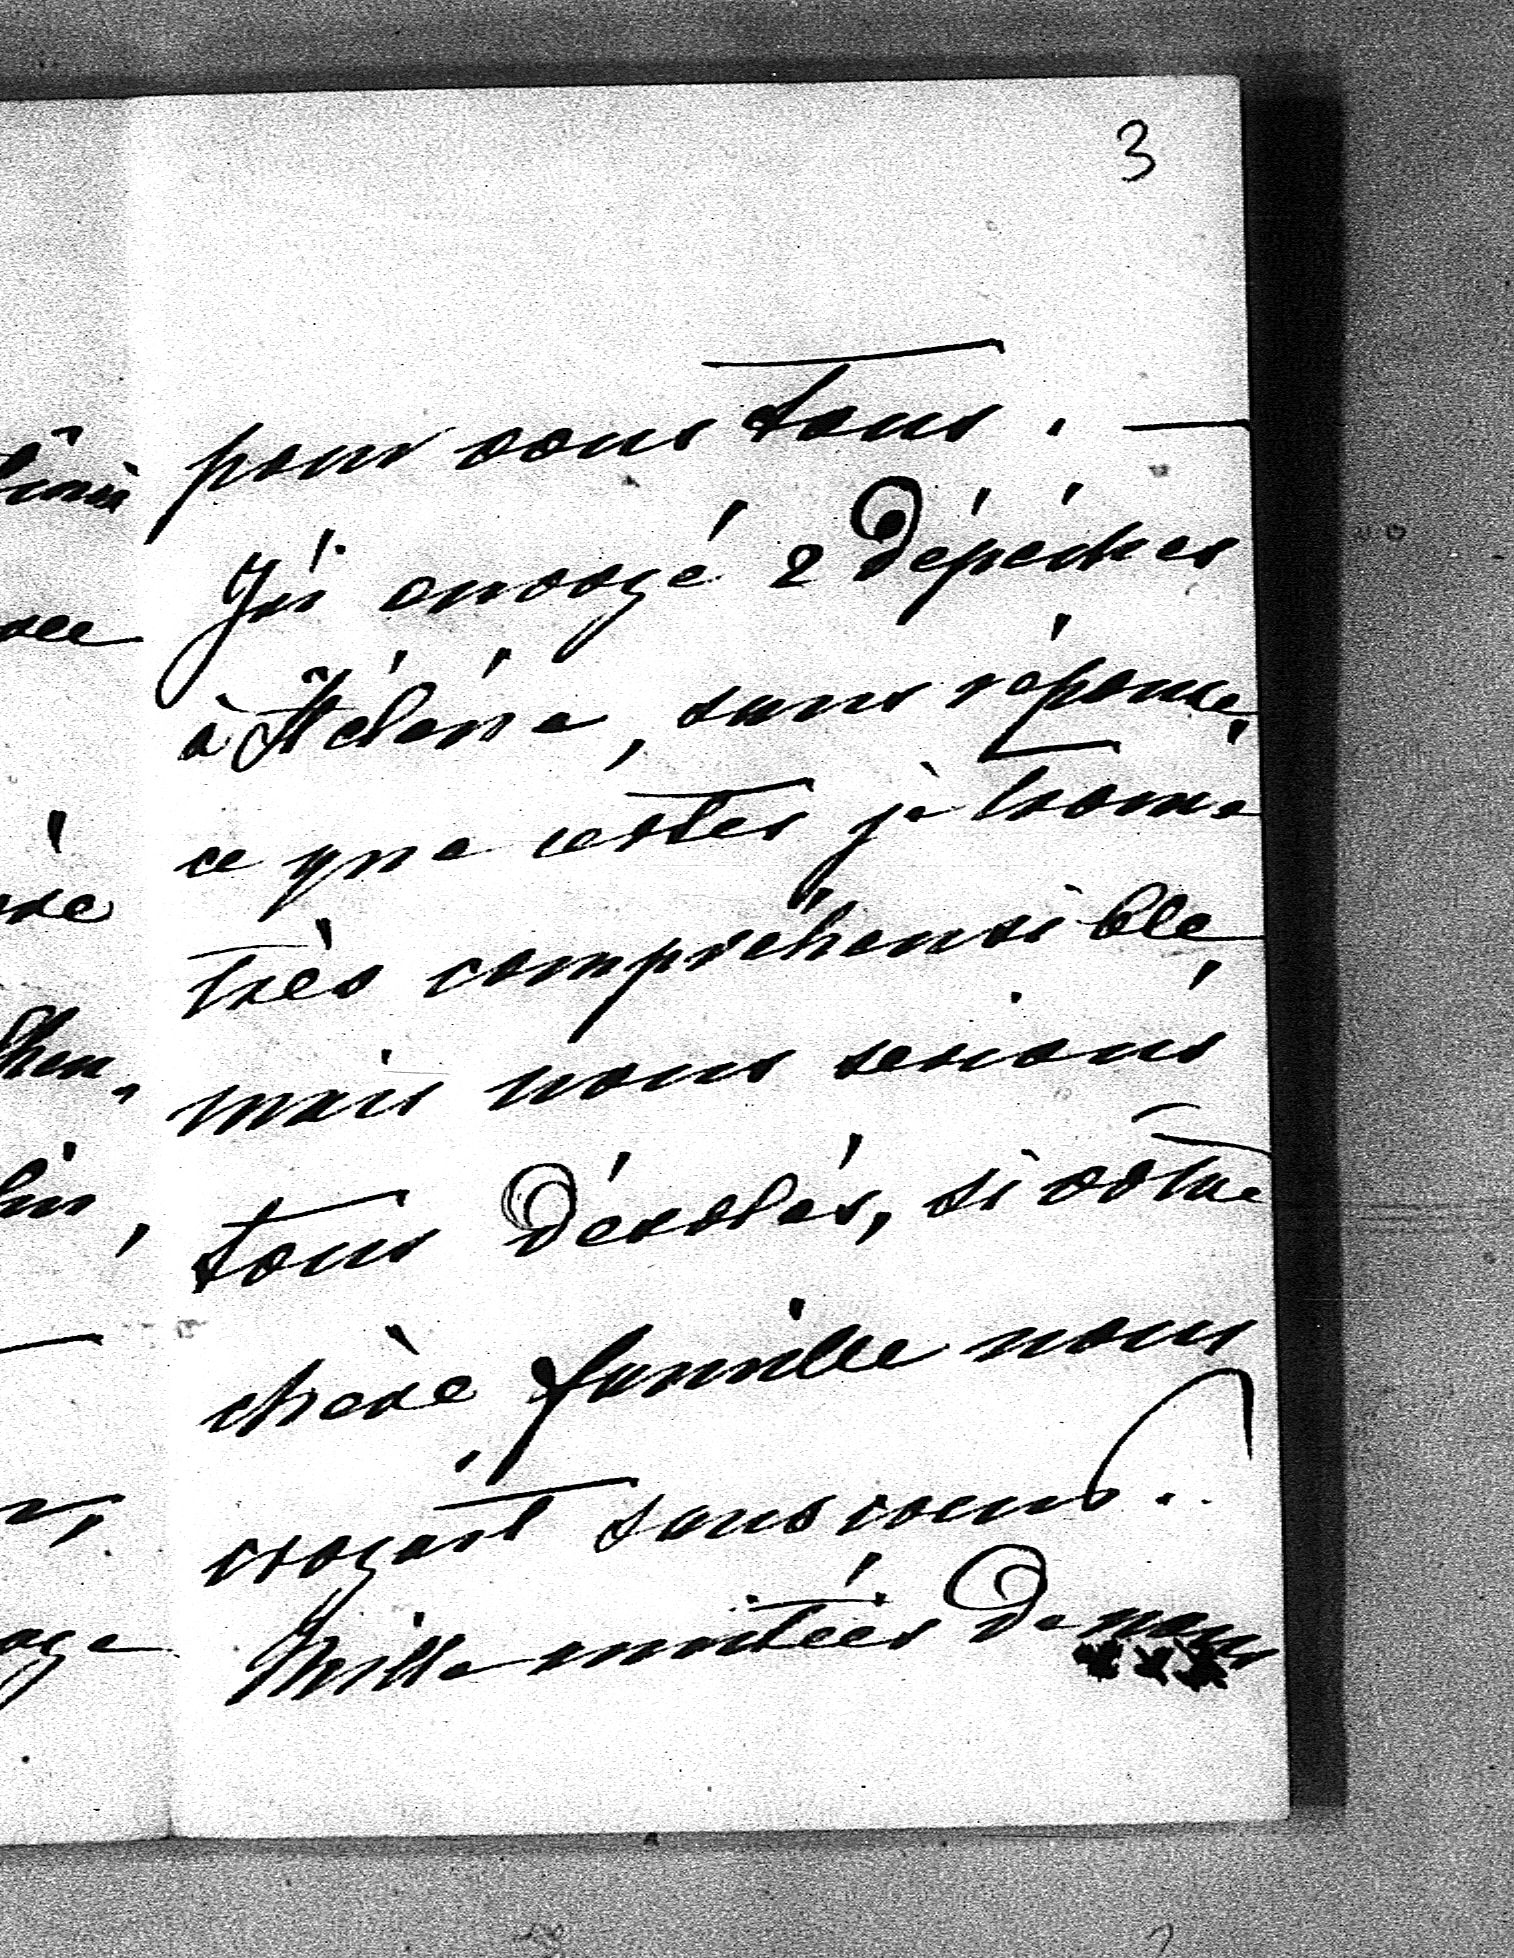 3
pour vous tous. —
J'ai envoyé 2 dépéches
à Hélène, sans réponse,
ce que certes je trouve
très compréhensible,
mais nous serions
tous désolés, si votre
chère famille nous
croyait sans coeur.
Mille amitiés de nous